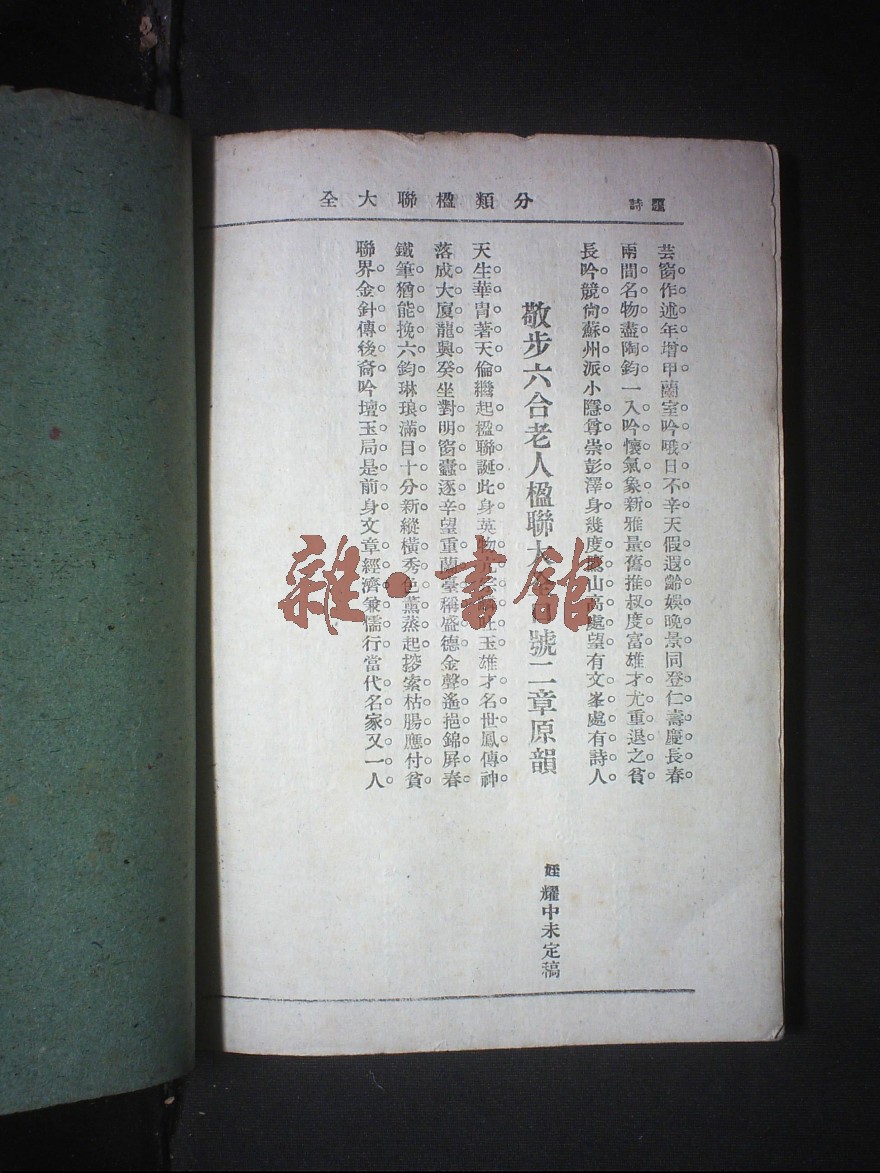 題詩
分類楹聯大全
芸窗作述年增甲蘭室吟哦日不辛天假遐齡娛晚景同登仁壽慶長春
兩間名物盡陶鈞一入吟懷氣象新雅量舊推叔度富雄才尤重退之貧
長吟競尙蘇州派小隱尊崇彭澤身幾度山高處望有文峯處有詩人
敬步六合老人楹聯大號二章原韻
姪 耀中未定稿
天生華胄著天倫繼起楹聯誕此身英物吐玉雄才名世鳳傳神
落成大廈龍興癸坐對明窗蠹逐辛望重蘭臺稱盛德金聲遙挹錦屏春
鐵筆猶能挽六鈞琳琅滿目十分新縱橫秀色薰蒸起索枯腸應付貧
聯界金針傳後裔吟壇玉局是前身文章經濟兼儒行當代名家又一人
雜·書館